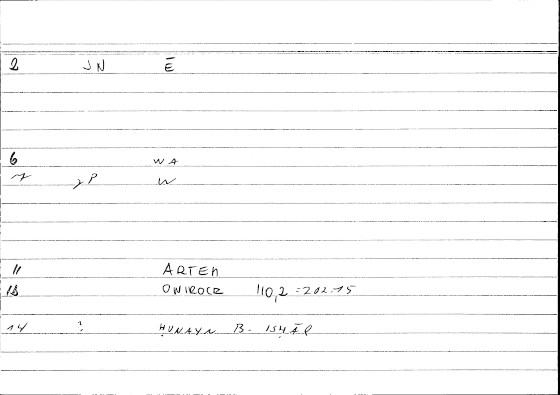 2 JN Ē
6 WA
7 γP W
11 ARTEM
13 ONIROCR 110,2 = 202.15
14 ? ḤUNAYN B. ISḤĀQ